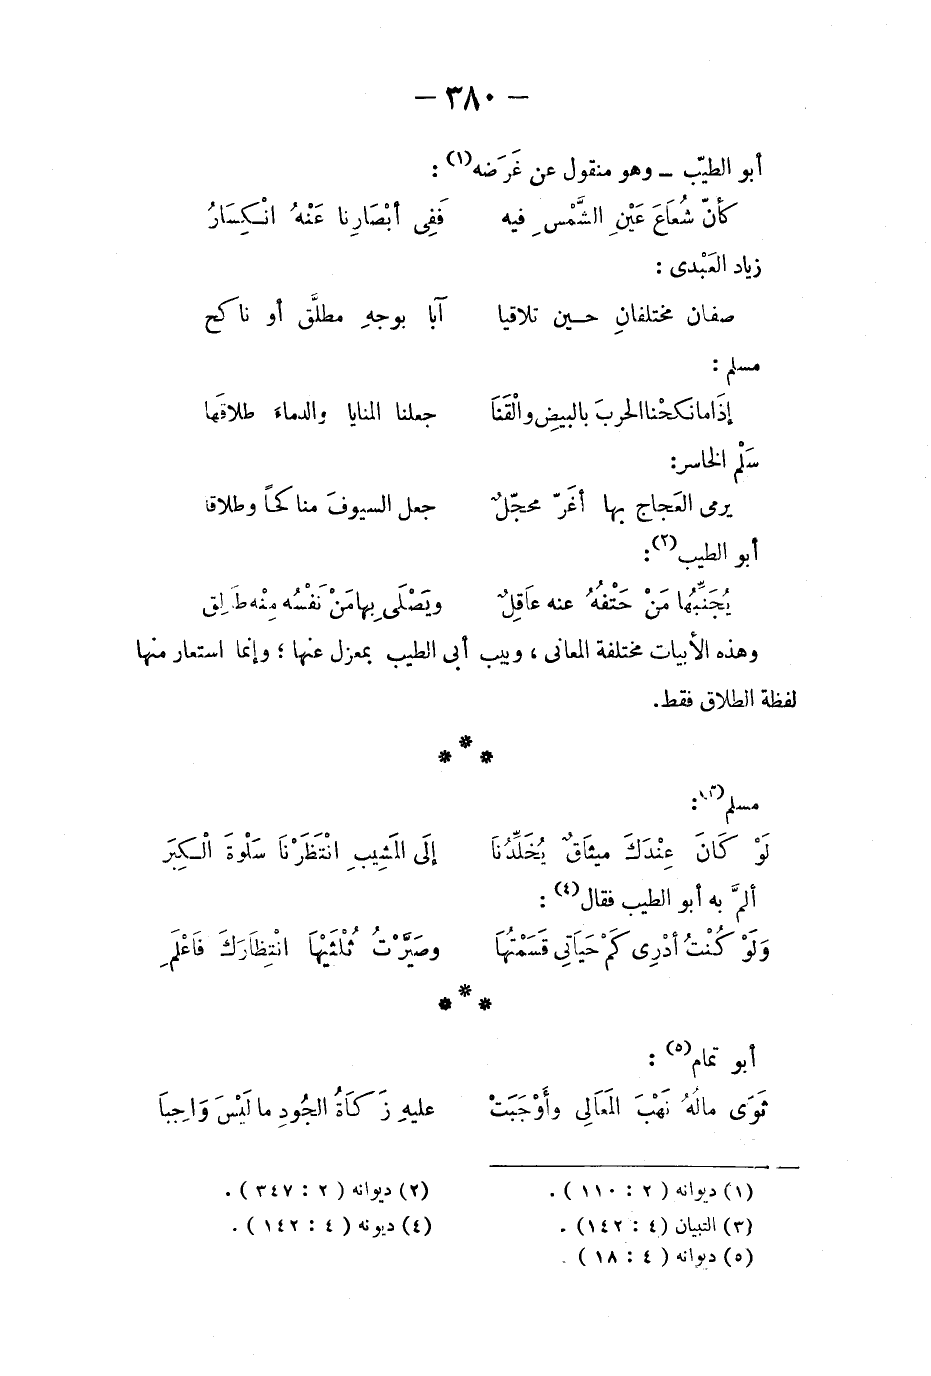 — ٣٨٠ —
أبو الطيّب ــ وهو منقول عن غَرَضه(١) :
كأنّ شُعاَعَ عَيْنِ الشَّمْسِ فيه فَفِى أبْصَارِنا عَنْهُ انْكِسَارُ
زياد العَبْدى :
صفان مختلفانِ حين تلاقيا آبَا بوجهِ مطلَّق أو ناكح
مسلم :
إذَا ما نكحْنا الحربَ بالبيضِ والْقَنَا جعلنا المنايا والدماءَ طلاقَها
سَلْم الخاسر:
يرمى العَجاج بها أغَرّ محجّلٌ جعل السيوفَ مناكحًا وطلاقا
أبو الطيب(٢):
يُجَنِّبُها مَنْ حَتْفُهُ عنه عاَقِلٌ ويَصْلَى بِها مَنْ نَفْسُه مِنْه طَالِق
وهذه الأبيات مختلفة المعانى ، وبيب أبى الطيب بمعزل عنها ؛ وإنما استعار منها
لفظة الطلاق فقط.
***
مسلم(٣):
لَوْ كَانَ عِنْدَكَ ميثاَقٌ يُخَلِّدُنَا إلَى المَشِيبِ انْتَظَرْنَا سَلْوةَ الْكِبَرَ
ألمَّ به أبو الطيب فقال(٤) :
وَلَوْ كُنْتُ أدْرِى كَمْ حَيَاتِى قَسَمْتُهَا وصَيَّرْتُ ثُلْثَيْهَا انْتِظَارَكَ فَاعْلَمِ
***
أبو تمام(٥) :
ثَوَى مالُهُ نَهْبَ المَعَالِى وأَوْجَبَتْ عليهِ زَكَاةُ الجُودِ ما لَيْسَ وَاجِبَا
(١) ديوانه ( ٢ : ١١٠ ) . (٢) ديوانه ( ٢ : ٣٤٧ ) .
(٣) التبيان (٤ : ١٤٢) . (٤) ديونه ( ٤ : ١٤٢ ) .
(٥) ديوانه ( ٤ : ١٨ ) .